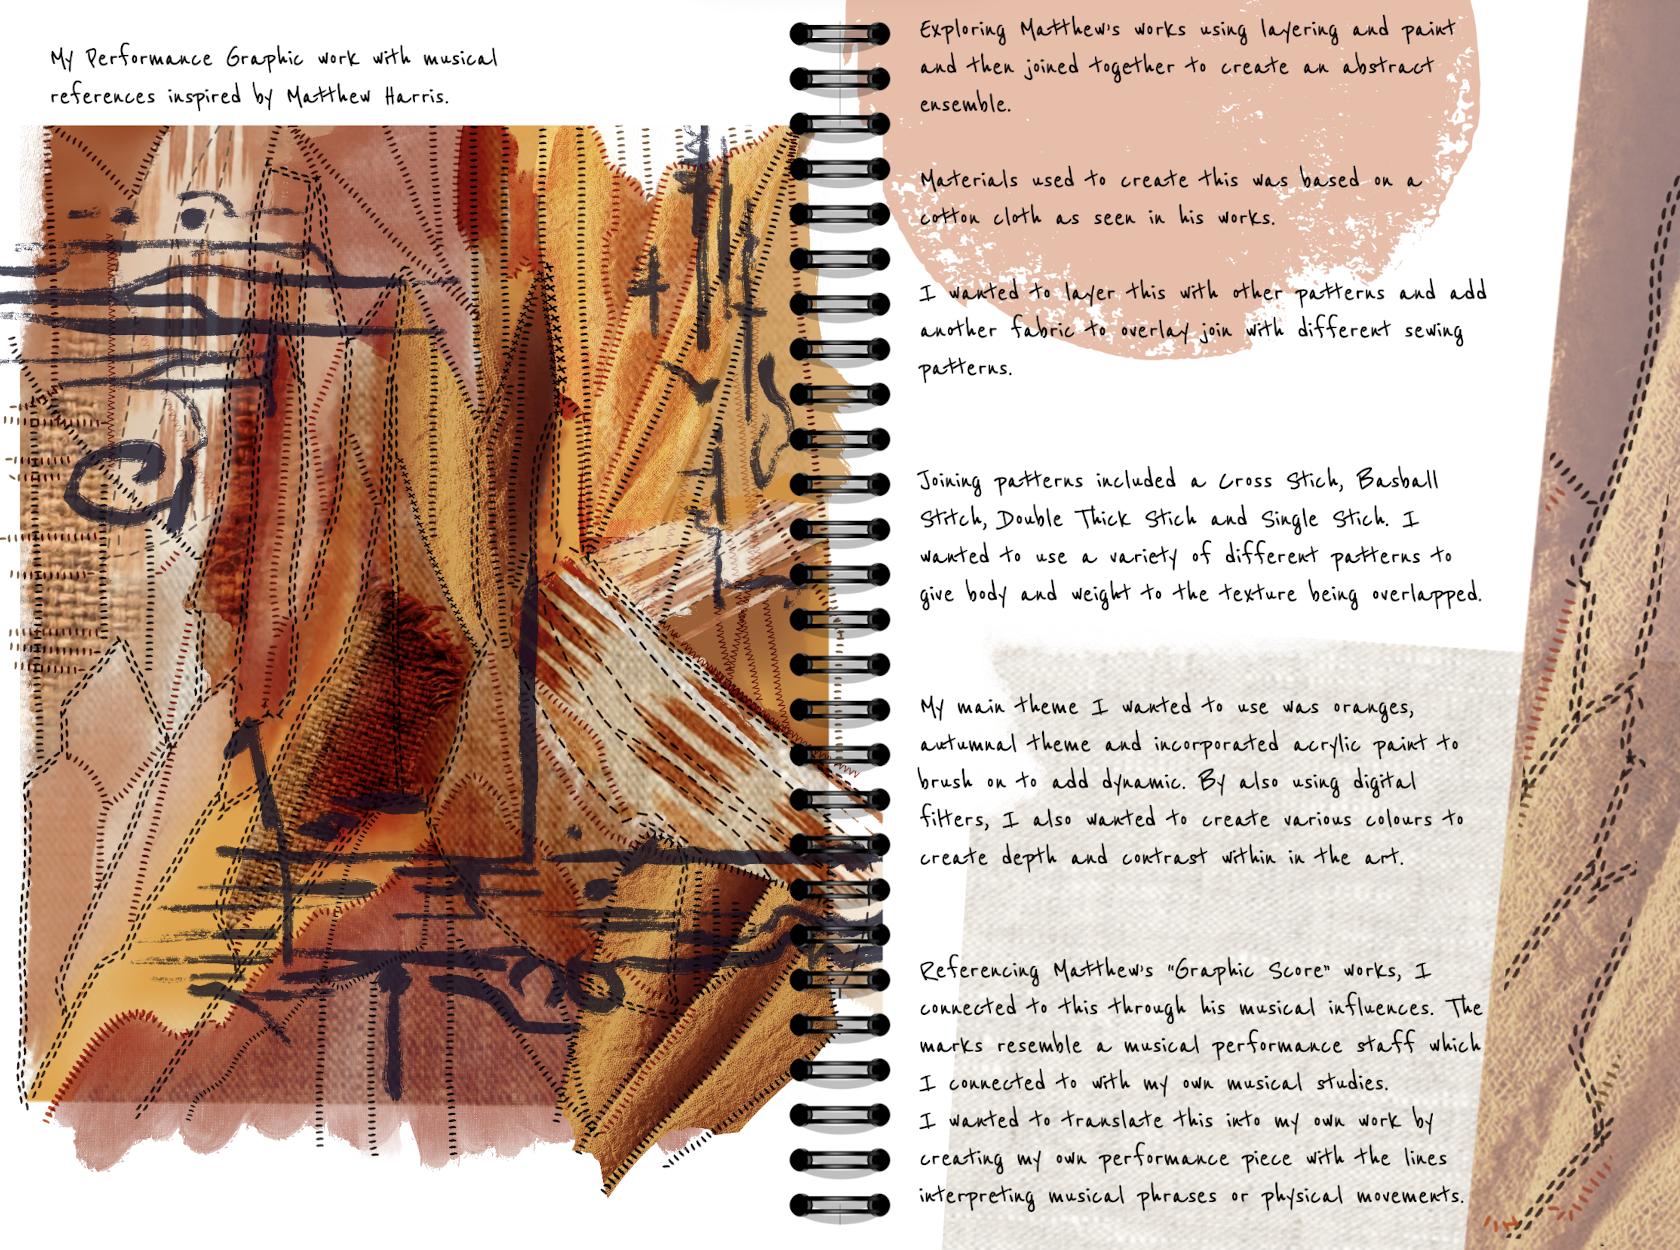 My Performance Graphic work with musical
references inspired by Matthew Harris.
Exploring Matthew's works using layering and paint
and then joined together to create an abstract
ensemble.
Materials used to create this was based on a
cotton cloth as seen in his works.
I wanted to layer this with other patterns and add
another fabric to overlay join with different sewing
patterns.
Joining patterns included a Cross Stich, Basball
Stitch, Double Thick Stich and Single Stich. I
wanted to use a variety of different patterns to
give body and weight to the texture being overlapped.
My main theme I wanted to use was oranges,
autumnal theme and incorporated acrylic paint to
brush on to add dynamic. By also using digital
filters, I also wanted to create various colours to
create depth and contrast within in the art.
Referencing Matthew's "Graphic Score" works, I
connected to this through his musical influences. The
marks resemble a musical performance staff which
I connected to with my own musical studies.
I wanted to translate this into my own work by
creating my own performance piece with the lines
interpreting musical phrases or physical movements.